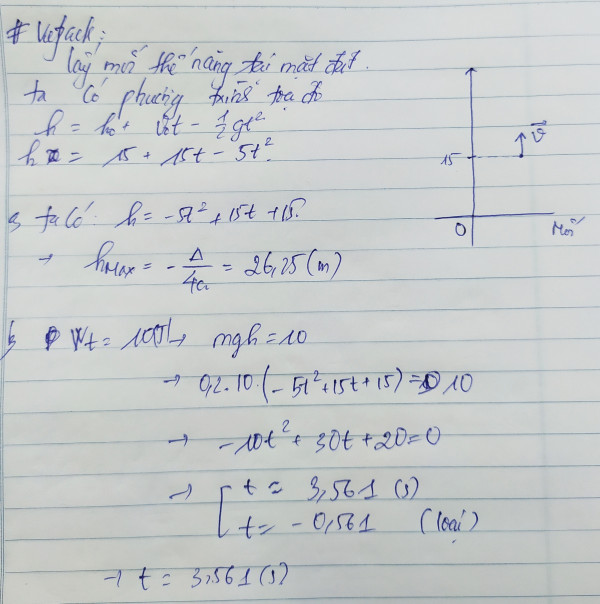 # Vetpack:
lấy mốc thế năng tại mặt đất.
ta có phương trình tọa độ
h = h₀ + v₀t - 1/2 gt²
h = 15 + 15t - 5t².
15
v⃗
O
Mốc
a, ta có: h = -5t² + 15t + 15.
→ hMax = - Δ/4a = 26,25 (m)
b, Wt = 10(J) → mgh = 10
→ 0,2.10.(-5t²+15t+15) = 10
→ -10t² + 30t + 20 = 0
→ [ t = 3,561 (s)
t = -0,561 (loại)
→ t = 3,561 (s)